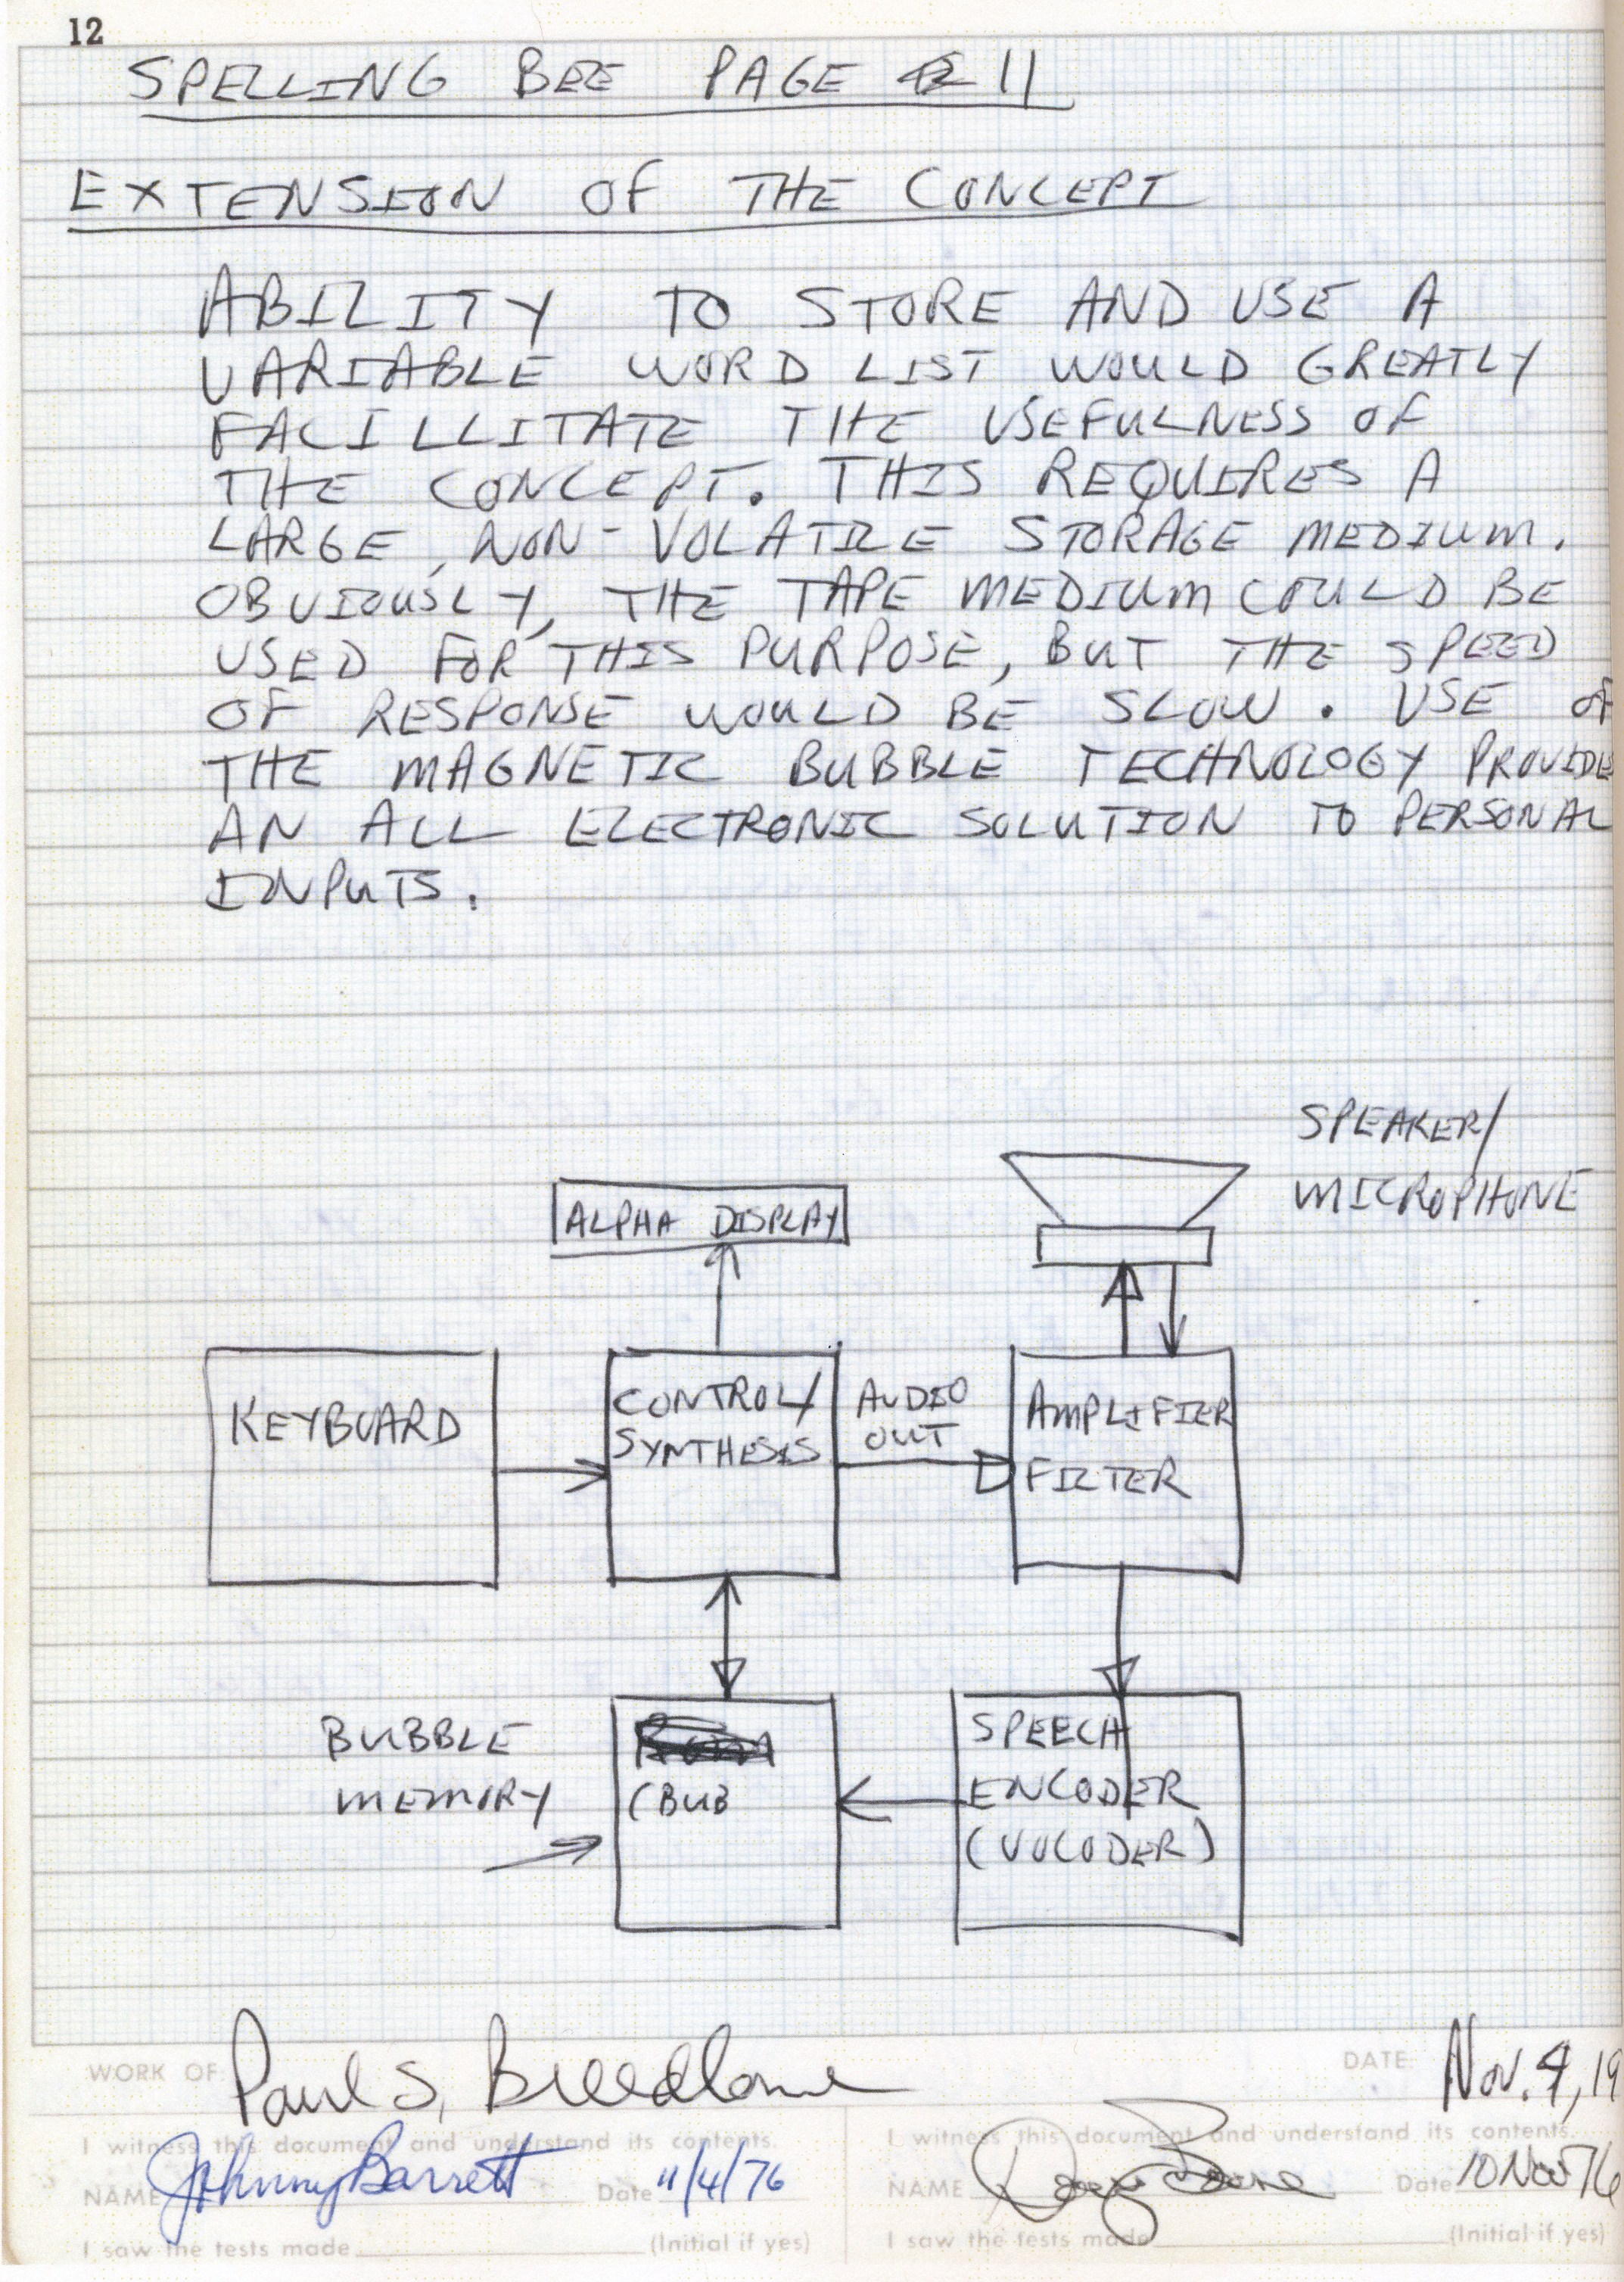 12
SPELLING BEE PAGE 11
EXTENSION OF THE CONCEPT
ABILITY TO STORE AND USE A
VARIABLE WORD LIST WOULD GREATLY
FACILLITATE THE USEFULNESS OF
THE CONCEPT. THIS REQUIRES A
LARGE, NON-VOLATILE STORAGE MEDIUM.
OBVIOUSLY, THE TAPE MEDIUM COULD BE
USED FOR THIS PURPOSE, BUT THE SPEED
OF RESPONSE WOULD BE SLOW. USE OF
THE MAGNETIC BUBBLE TECHNOLOGY PROVIDE
AN ALL ELECTRONIC SOLUTION TO PERSONAL
INPUTS.
SPEAKER/
MICROPHONE
ALPHA DISPLAY
KEYBOARD
CONTROL/
SYNTHESIS
AUDIO
OUT
AMPLIFIER
FILTER
BUBBLE
MEMORY
(BUB
SPEECH
ENCODER
(VOCODER)
WORK OF Paul S. Breedlove DATE: Nov. 4, 19
I witness this document and understand its contents.
NAME Johnny Barrett Date 11/4/76
I saw the tests made (Initial if yes)
I witness this document and understand its contents.
NAME Date 10 Nov 76
I saw the tests made (Initial if yes)